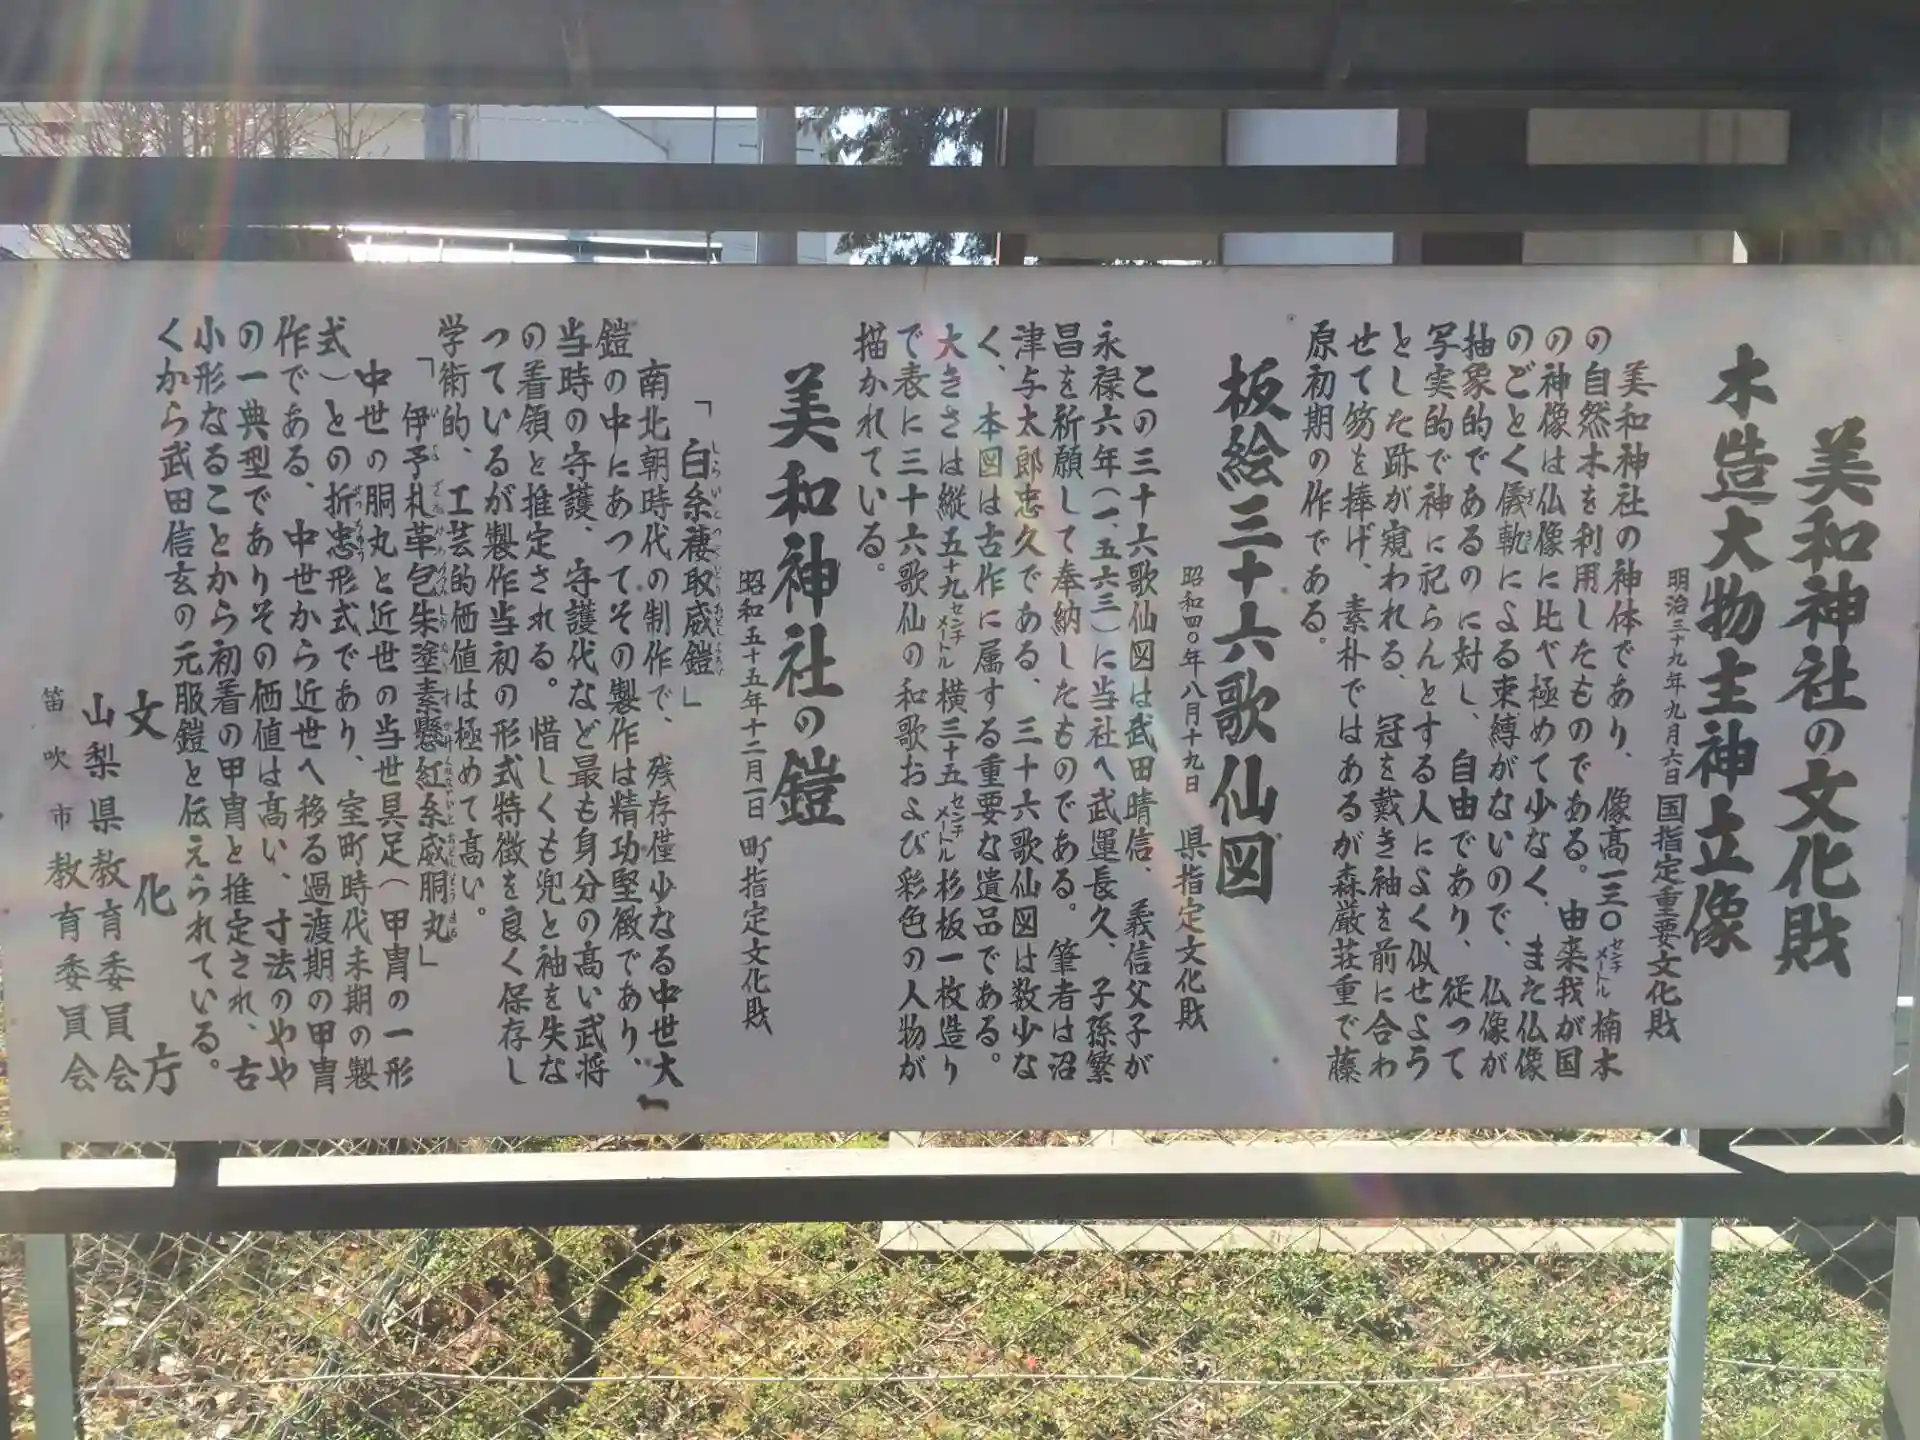 美和神社の文化財
木造大物主神立像
明治三十九年九月六日 国指定重要文化財
美和神社の神体であり、像高一三〇センチメートル楠木
の自然木を利用したものである。由来我が国
の神像は仏像に比べ極めて少なく、また仏像
のごとく儀軌による束縛がないので、仏像が
抽象的であるのに対し、自由であり、従って
写実的で神に祀らんとする人によく似せよう
とした跡が窺われる、冠を戴き袖を前に合わ
せて笏を捧げ、素朴ではあるが森厳荘重で藤
原初期の作である。
板絵三十六歌仙図
昭和四〇年八月十九日 県指定文化財
この三十六歌仙図は武田晴信、義信父子が
永禄六年(一、五六三)に当社へ武運長久、子孫繁
昌を祈願して奉納したものである。筆者は沼
津与太郎忠久である、三十六歌仙図は数少な
く、本図は古作に属する重要な遺品である。
大きさは縦五十九センチメートル横三十五センチメートル杉板一枚造り
で表に三十六歌仙の和歌および彩色の人物が
描かれている。
美和神社の鎧
昭和五十五年十二月一日 町指定文化財
「白糸褄取威鎧」
南北朝時代の制作で、残存僅少なる中世大
鎧の中にあってその製作は精功堅緻であり、
当時の守護、守護代など最も身分の高い武将
の着領と推定される。惜しくも兜と袖を失な
っているが製作当初の形式特徴を良く保存し
学術的、工芸的価値は極めて高い。
「伊予札革包朱塗素懸紅糸威胴丸」
中世の胴丸と近世の当世具足(甲冑の一形
式)との折忠形式であり、室町時代末期の製
作である、中世から近世へ移る過渡期の甲冑
の一典型でありその価値は高い、寸法のやや
小形なることから初着の甲冑と推定され、古
くから武田信玄の元服鎧と伝えられている。
文化庁
山梨県教育委員会
笛吹市教育委員会